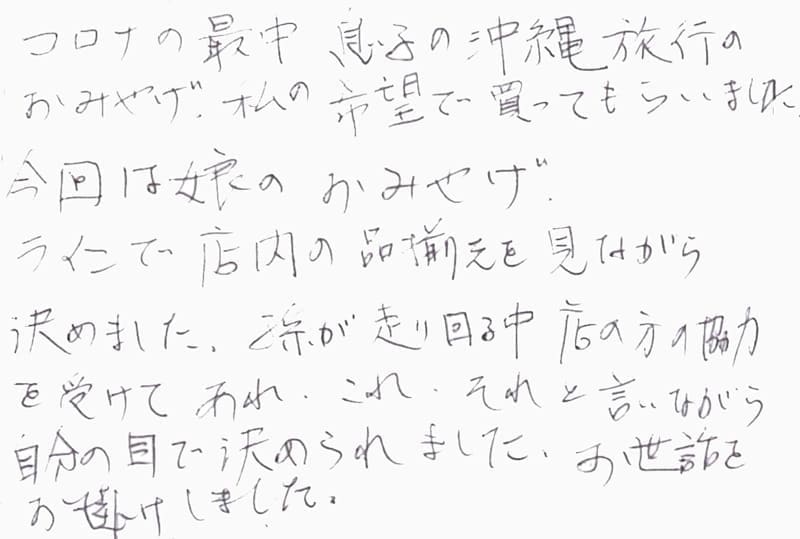 コロナの最中 息子の沖縄旅行の
おみやげ、私の希望で買ってもらいました
今回は娘の おみやげ、
ラインで店内の品揃えを見ながら
決めました、孫が走り回る中 店の方の協力
を受けて あれ、これ、それと言いながら
自分の目で決められました、お世話を
お掛けしました。